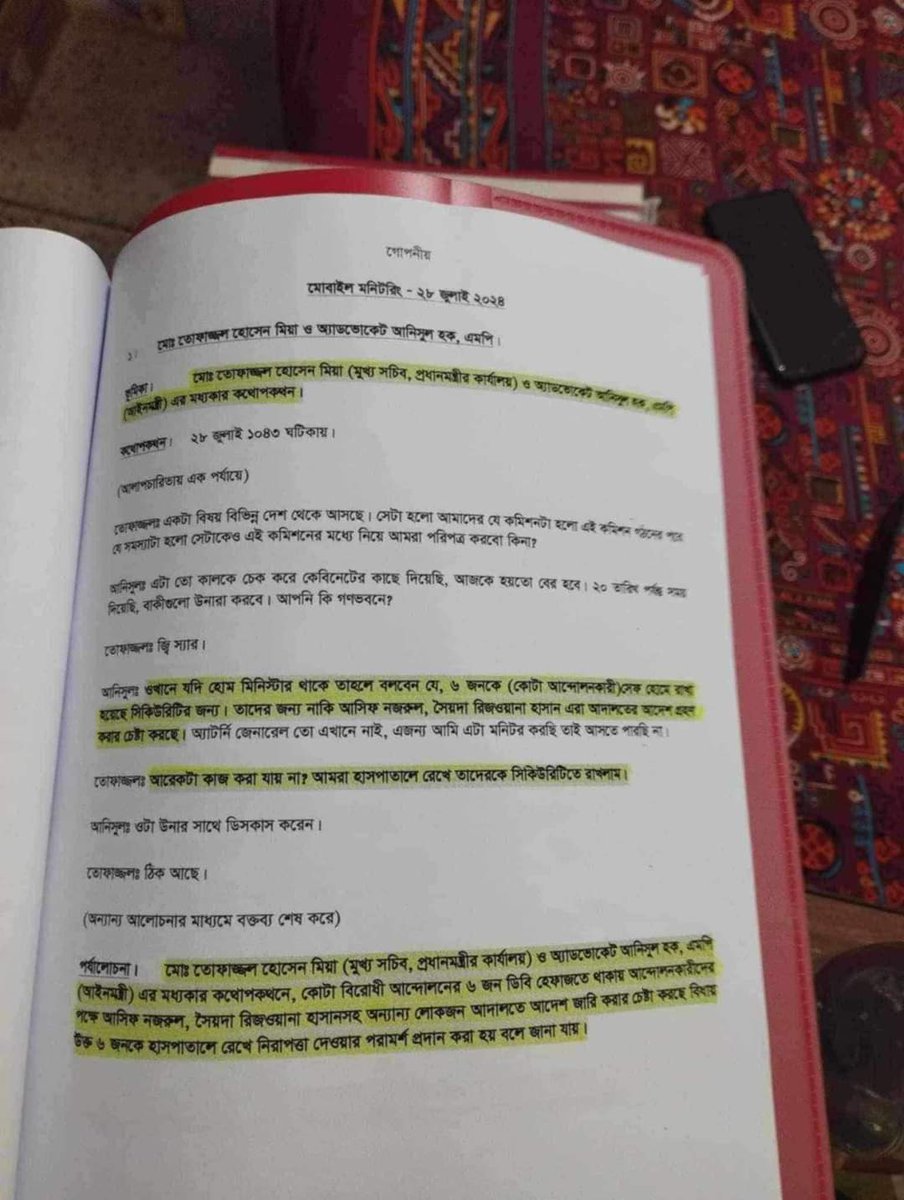 গোপনীয়
মোবাইল মনিটরিং - ২৮ জুলাই ২০২৪
১। মোঃ তোফাজ্জল হোসেন মিয়া ও অ্যাডভোকেট আনিসুল হক, এমপি।
ভূমিকা। মোঃ তোফাজ্জল হোসেন মিয়া (মুখ্য সচিব, প্রধানমন্ত্রীর কার্যালয়) ও অ্যাডভোকেট আনিসুল হক, এমপি
(আইনমন্ত্রী) এর মধ্যকার কথোপকথন।
কথোপকথন। ২৮ জুলাই ১০৪৩ ঘটিকায়।
(আলাপচারিতায় এক পর্যায়ে)
তোফাজ্জলঃ একটা বিষয় বিভিন্ন দেশ থেকে আসছে। সেটা হলো আমাদের যে কমিশনটা হলো এই কমিশন গঠনের পরে
যে সমস্যাটা হলো সেটাকেও এই কমিশনের মধ্যে নিয়ে আমরা পরিপত্র করবো কিনা?
আনিসুলঃ এটা তো কালকে চেক করে কেবিনেটের কাছে দিয়েছি, আজকে হয়তো বের হবে। ২০ তারিখ পর্যন্ত সময়
দিয়েছি, বাকীগুলো উনারা করবে। আপনি কি গণভবনে?
তোফাজ্জলঃ জ্বি স্যার।
আনিসুলঃ ওখানে যদি হোম মিনিস্টার থাকে তাহলে বলবেন যে, ৬ জনকে (কোটা আন্দোলনকারী)সেফ হোমে রাখা
হয়েছে সিকিউরিটির জন্য। তাদের জন্য নাকি আসিফ নজরুল, সৈয়দা রিজওয়ানা হাসান এরা আদালতের আদেশ গ্রহণ
করার চেষ্টা করছে। অ্যাটর্নি জেনারেল তো এখানে নাই, এজন্য আমি এটা মনিটর করছি তাই আসতে পারছি না।
তোফাজ্জলঃ আরেকটা কাজ করা যায় না? আমরা হাসপাতালে রেখে তাদেরকে সিকিউরিটিতে রাখলাম।
আনিসুলঃ ওটা উনার সাথে ডিসকাস করেন।
তোফাজ্জলঃ ঠিক আছে।
(অন্যান্য আলোচনার মাধ্যমে বক্তব্য শেষ করে)
পর্যালোচনা। মোঃ তোফাজ্জল হোসেন মিয়া (মুখ্য সচিব, প্রধানমন্ত্রীর কার্যালয়) ও অ্যাডভোকেট আনিসুল হক, এমপি
(আইনমন্ত্রী) এর মধ্যকার কথোপকথনে, কোটা বিরোধী আন্দোলনের ৬ জন ডিবি হেফাজতে থাকায় আন্দোলনকারীদের
পক্ষে আসিফ নজরুল, সৈয়দা রিজওয়ানা হাসানসহ অন্যান্য লোকজন আদালতে আদেশ জারি করার চেষ্টা করছে বিধায়
উক্ত ৬ জনকে হাসপাতালে রেখে নিরাপত্তা দেওয়ার পরামর্শ প্রদান করা হয় বলে জানা যায়।